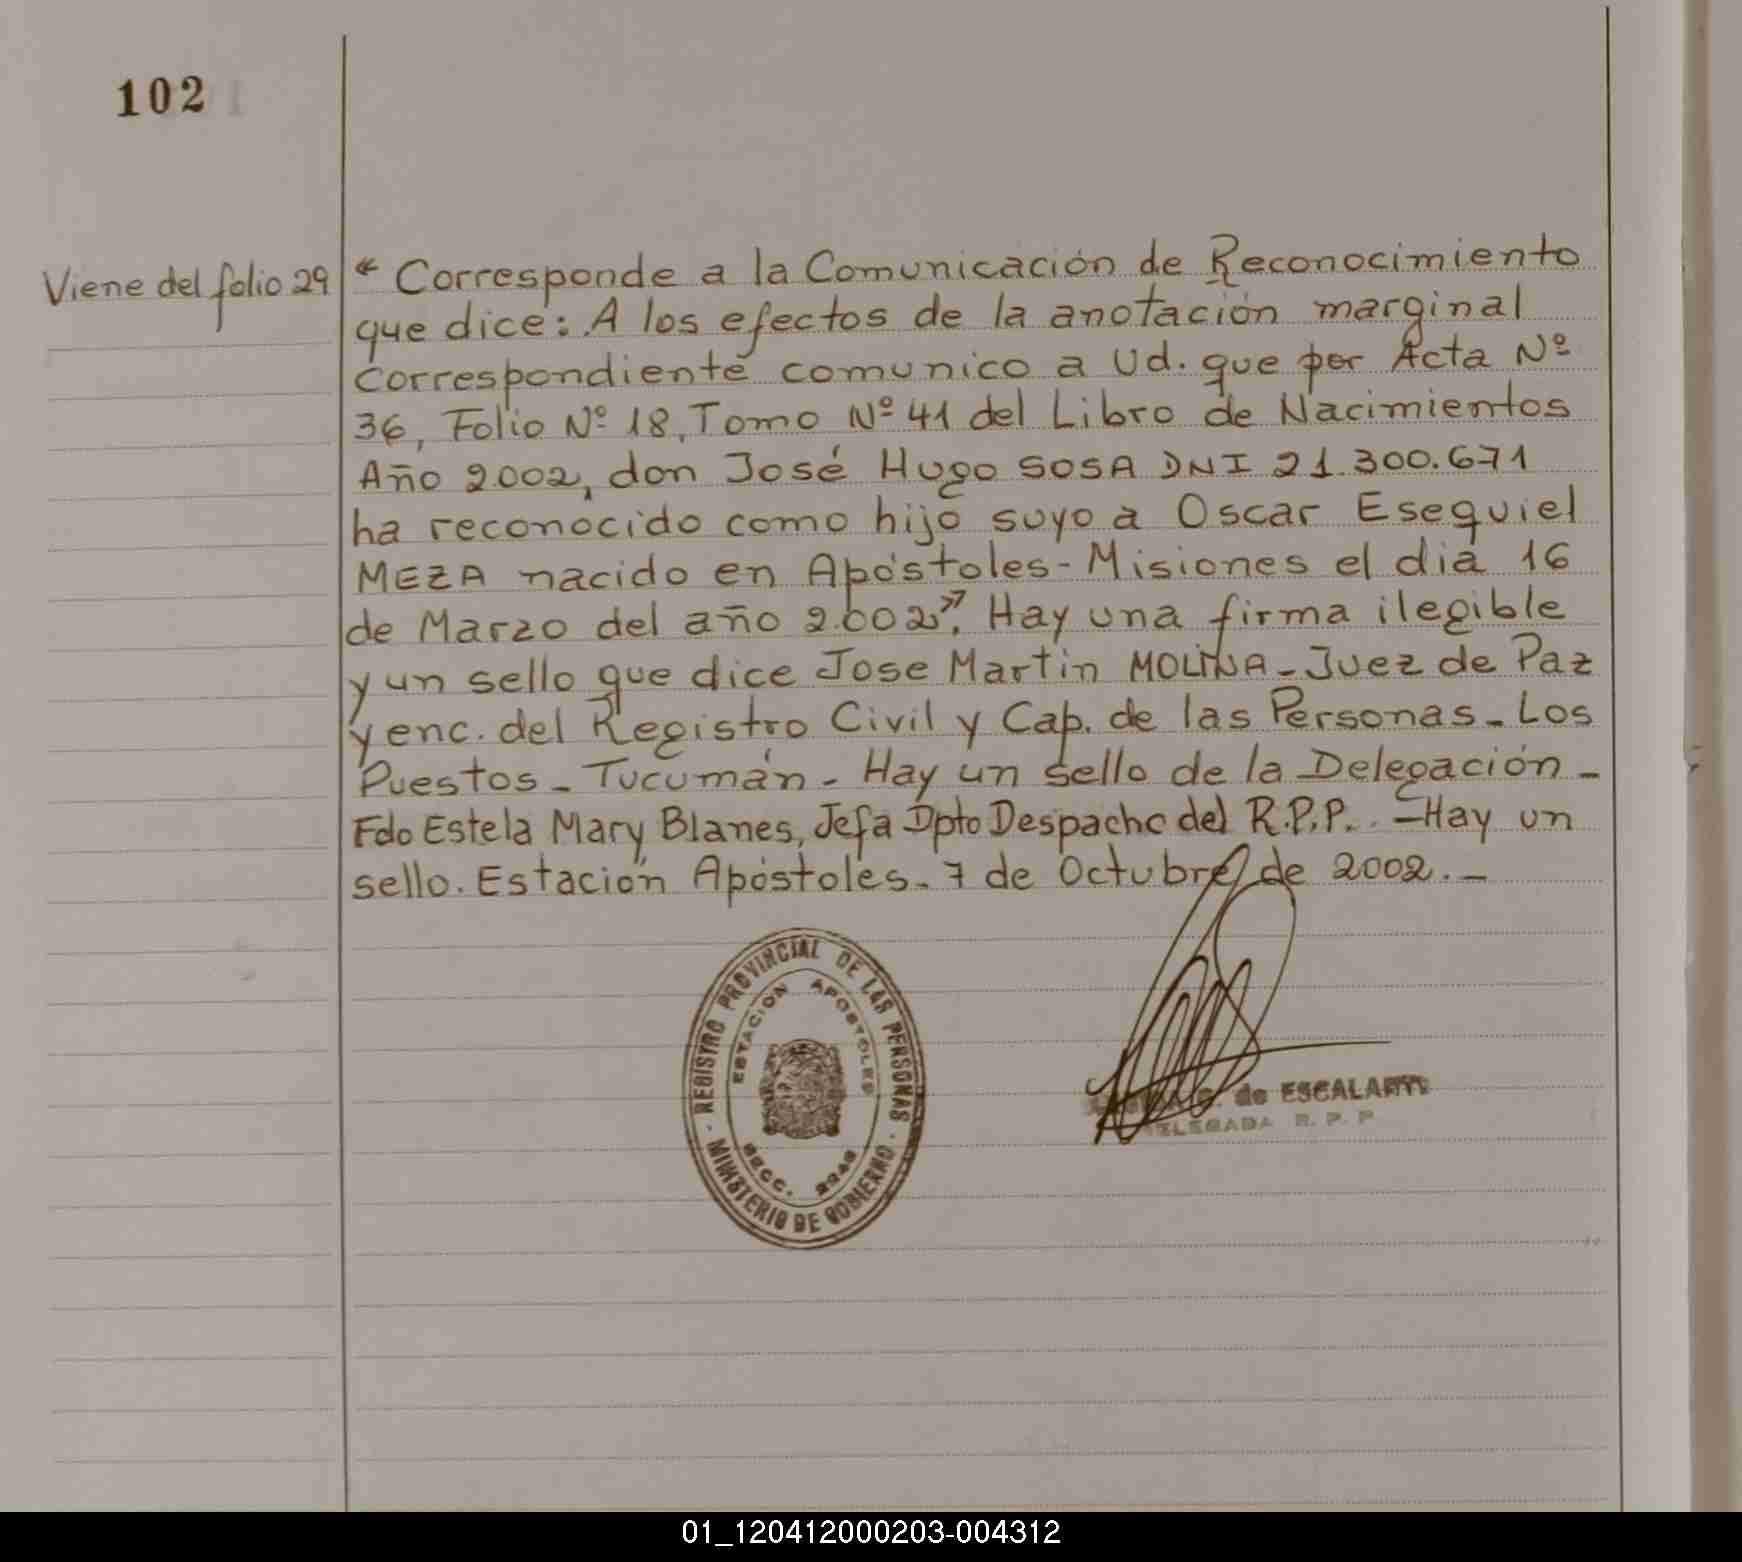 102
Viene del folio 29
" Corresponde a la Comunicación de Reconocimiento
que dice: A los efectos de la anotación marginal
correspondiente comunico a Ud. que por Acta Nº
36, Folio Nº 18, Tomo Nº 41 del Libro de Nacimientos
Año 2002, don José Hugo SOSA DNI 21.300.671
ha reconocido como hijo suyo a Oscar Esequiel
MEZA nacido en Apóstoles - Misiones el dia 16
de Marzo del año 2.002". Hay una firma ilegible
y un sello que dice Jose Martin MOLINA - Juez de Paz
y enc. del Registro Civil y Cap. de las Personas - Los
Puestos - Tucumán - Hay un sello de la Delegación -
Fdo Estela Mary Blanes, Jefa Dpto Despacho del R.P.P. - Hay un
sello. Estación Apóstoles - 7 de Octubre de 2002. -
REGISTRO PROVINCIAL DE LAS PERSONAS
ESTACION APOSTOLES
SECC.
MINISTERIO DE GOBIERNO
de ESCALANTE
DELEGADA R. P. P
01_120412000203-004312